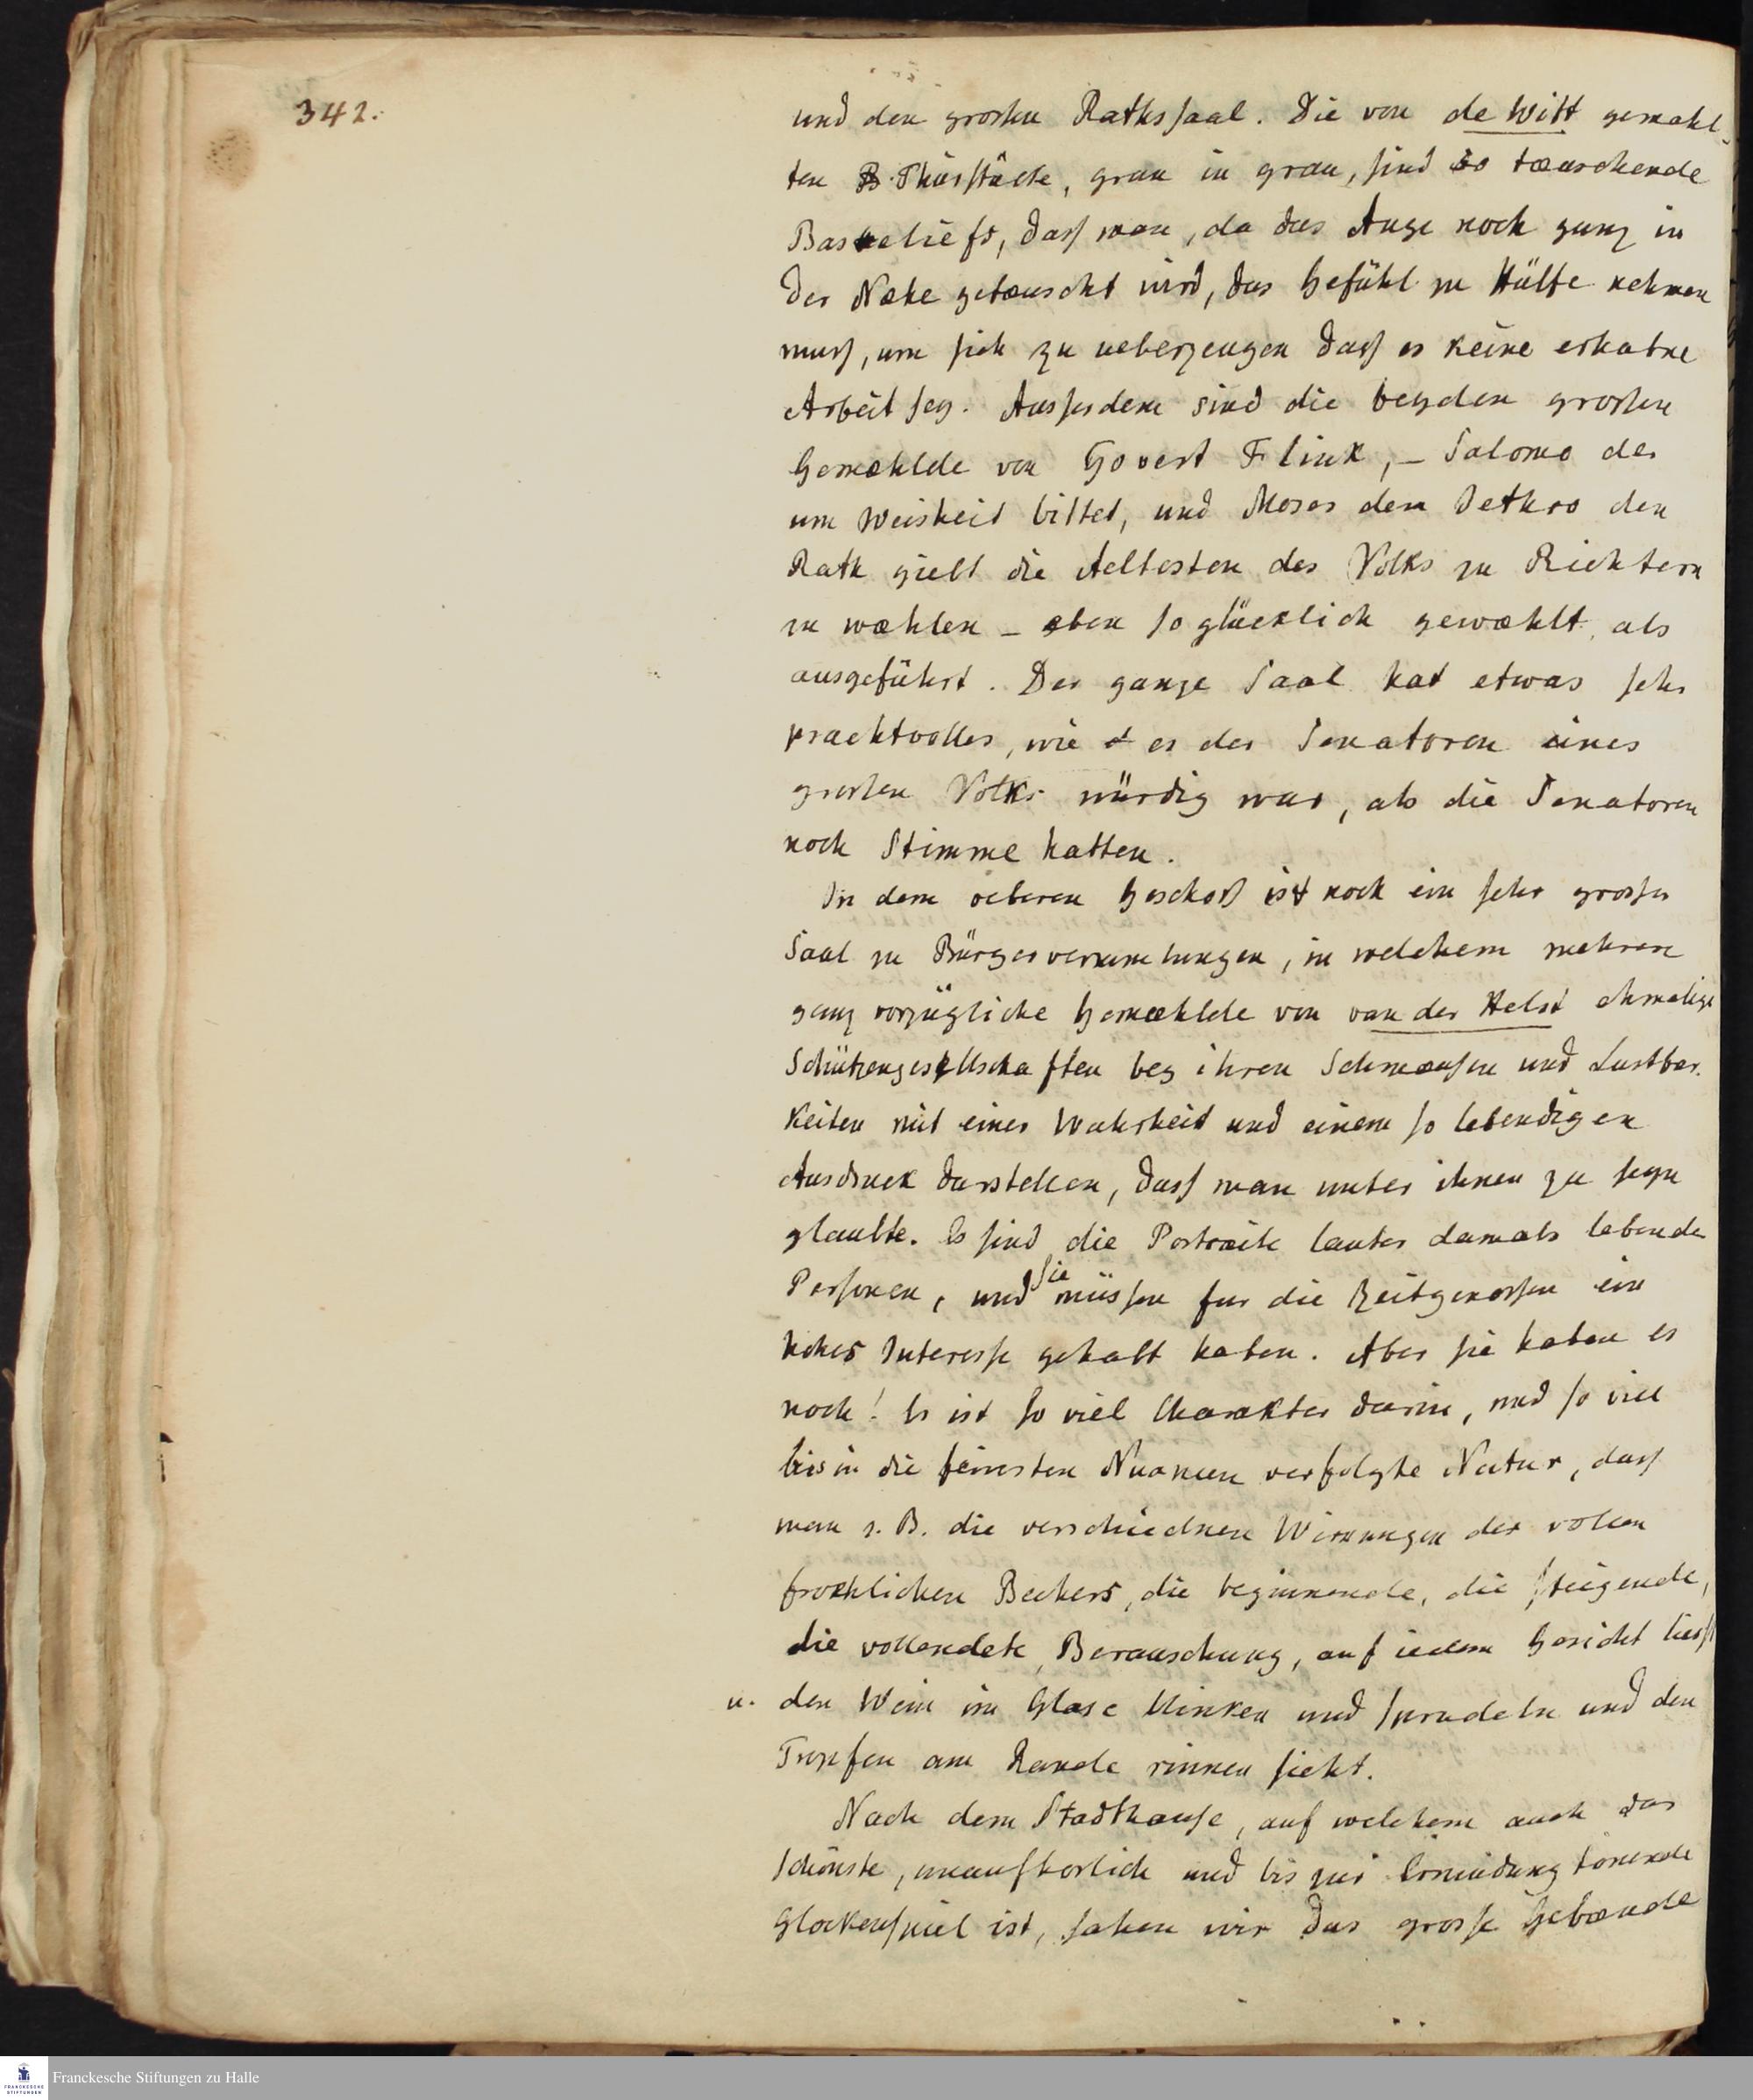 342.
und den grossen Rathssaal. Die von de Witt gemahl-
ten Thürstücke, grau in grau, sind so tæuschende
Basreliefs, dass man, da das Auge noch ganz in
der Næhe getæuscht wird, das Gefühl zu Hülfe nehmen
muss, um sich zu ueberzeugen dass es keine erhabne
Arbeit sey. Ausserdem sind die beyden grossen
Gemæhlde von Govert Flink, – Salomo der
um Weisheit bittet, und Moses dem Jethro den
Rath giebt die Aeltesten des Volks zu Richtern
zu wæhlen – eben so glücklich gewæhlt, als
ausgeführt. Der ganze Saal hat etwas sehr
prachtvolles, wie es der Senatoren eines
grossen Volks würdig war, als die Senatoren
noch Stimme hatten.
In dem oeberen Geschoß ist noch ein sehr grosser
Saal zu Bürgerversammlungen, in welchem mehrere
ganz vorzügliche Gemæhlde von van der Helst ehmalige
Schützengesellschaften bey ihren Schmæusen und Lustbar-
keiten mit einer Wahrheit und einem so lebendigen
Ausdruck darstellen, dass man unter ihnen zu seyn
glaubte. Es sind die Portræite lauter damals lebender
Personen, und sie müssen fur die Zeitgenossen ein
hohes Interesse gehabt haben. Aber sie haben es
noch! Es ist so viel Charakter darin, und so viel
bis in die feinsten Nuancen verfolgte Natur, dass
man z. B. die verschiednen Wirkungen des vollen
frœhlichen Bechers, die beginnende, die steigende,
die vollendete Berauschung, auf iedem Gesicht liesst
u. den Wein im Glase blinken und sprudeln und den
Tropfen am Rande rinnen sieht.
Nach dem Stadthause, auf welchem auch das
schönste, unaufhörlich und bis zur Ermüdung tönende
Glockenspiel ist, sahen wir das grosse Gebæude
Franckesche Stiftungen zu Halle
FRANCKESCHE
STIFTUNGEN